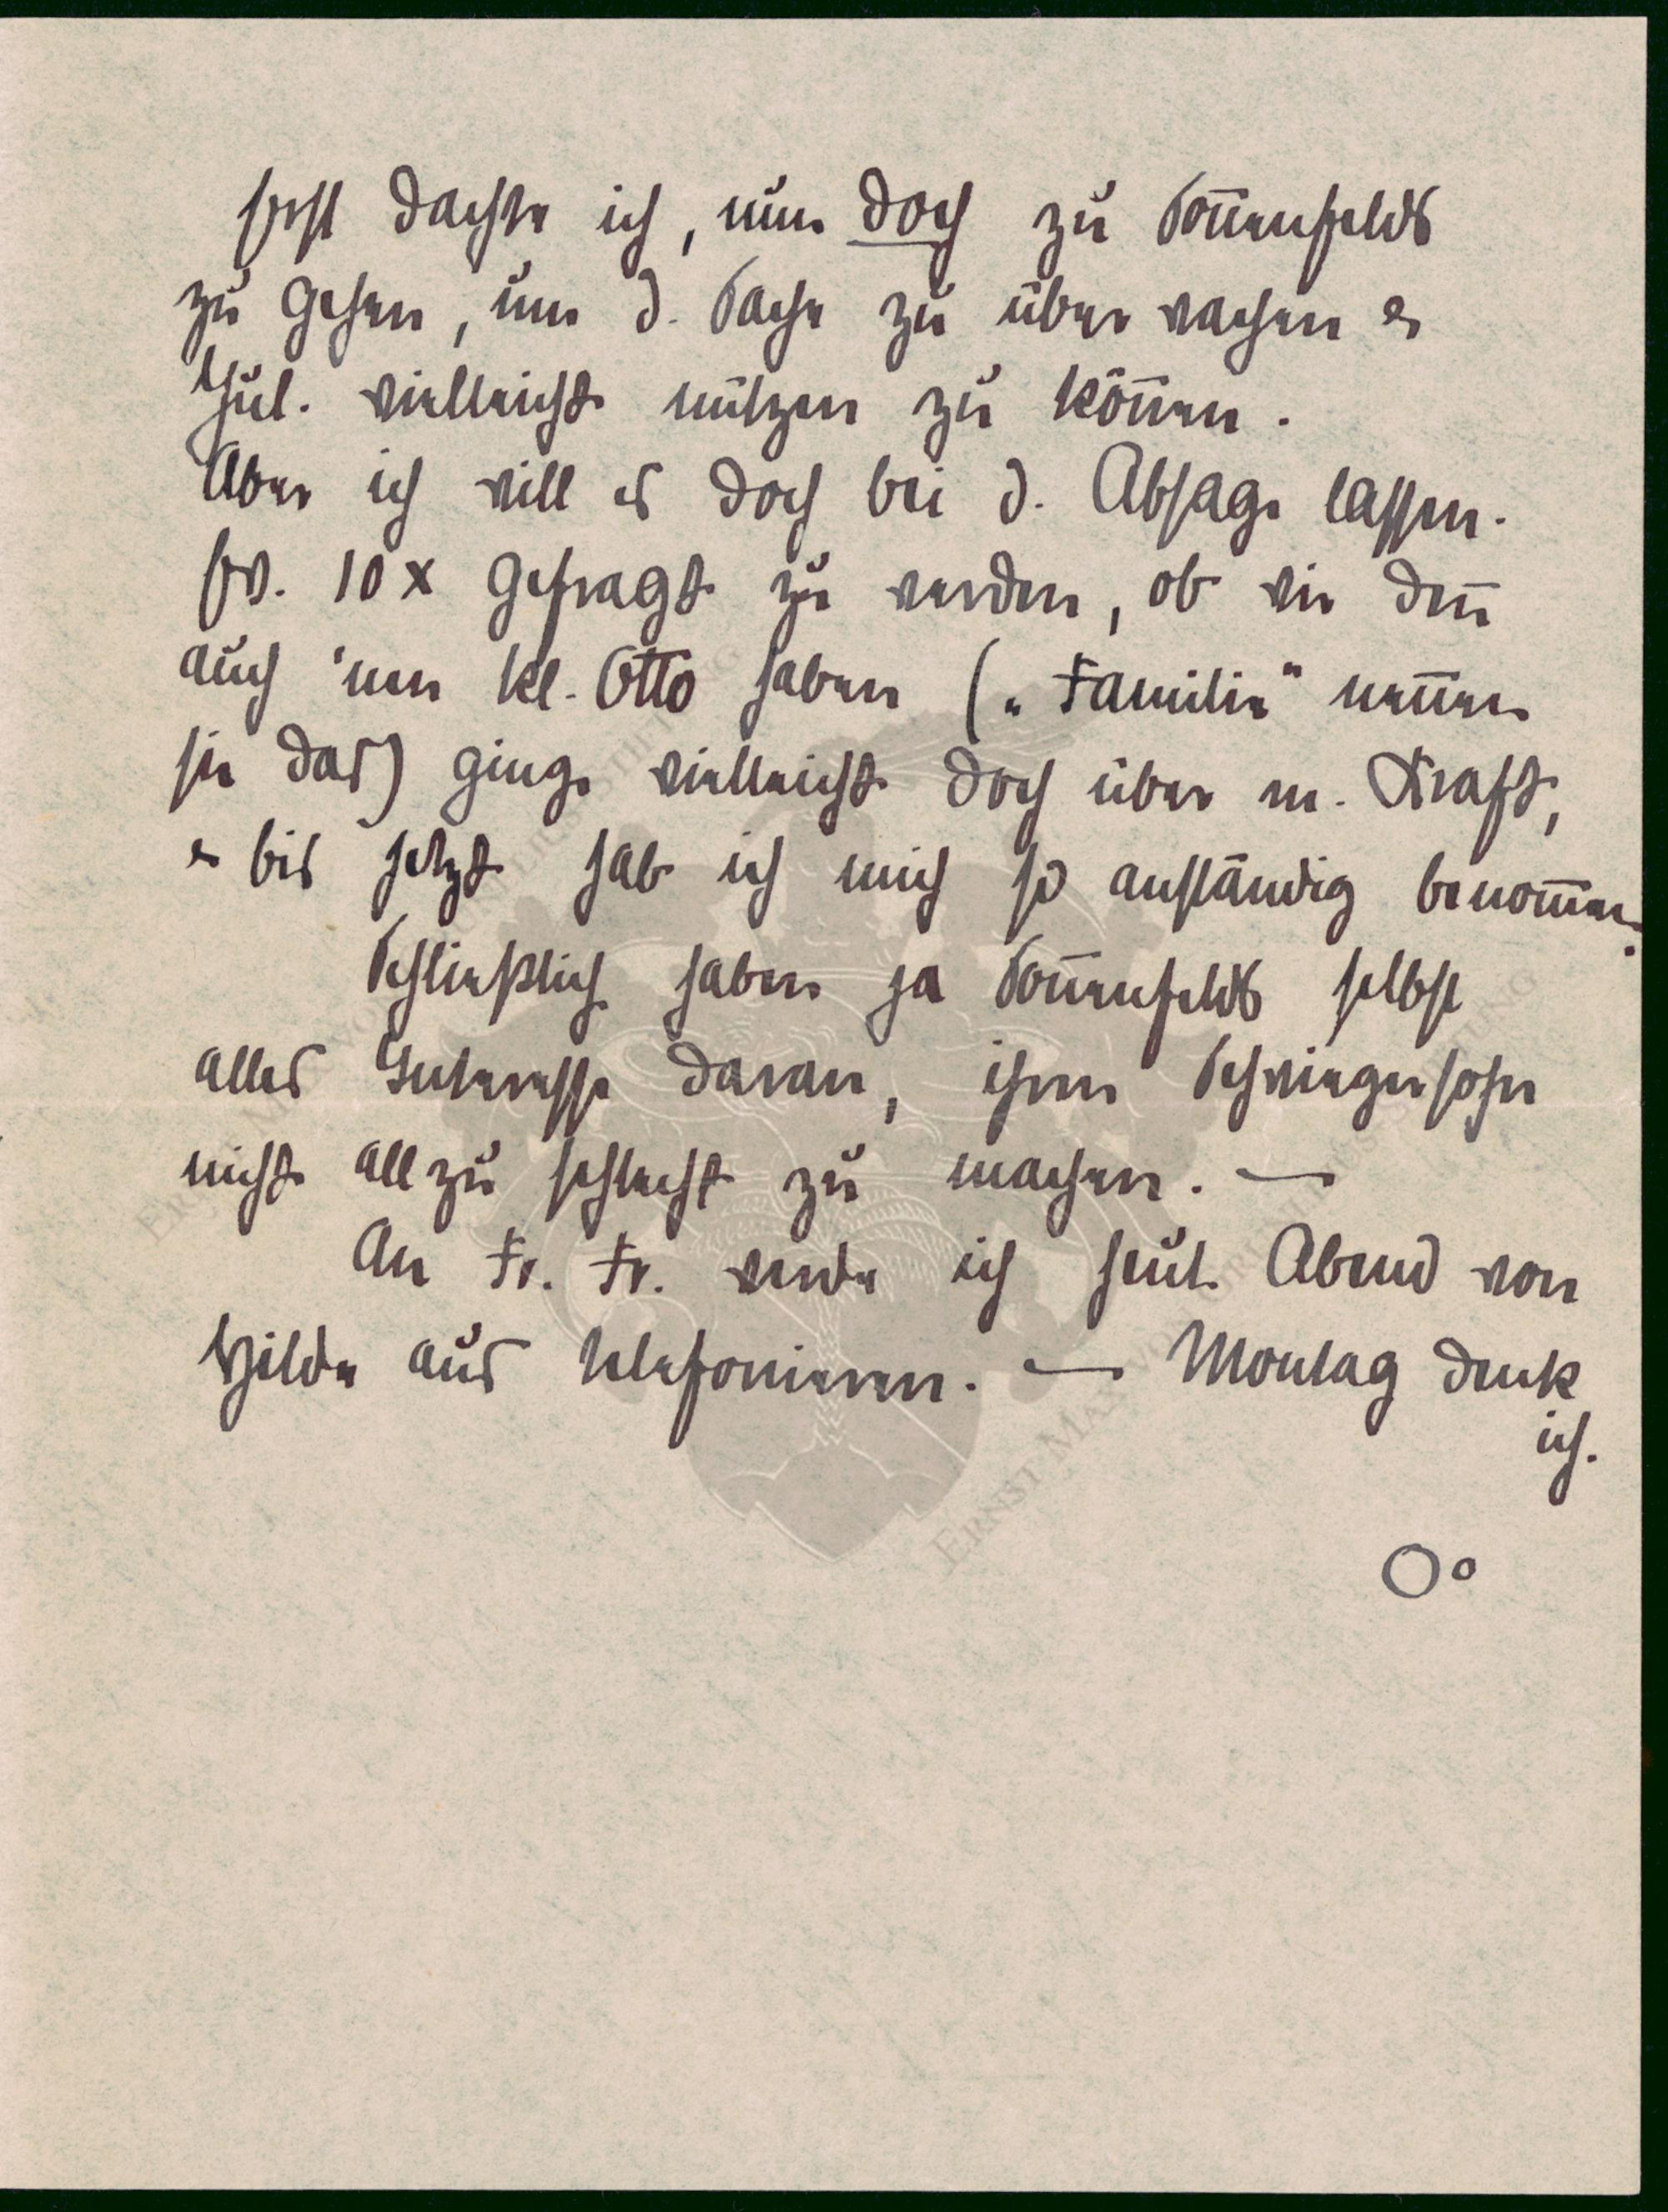 Erst dachte ich, nun doch zu Soñenfelds
zu gehen, um d. Sache zu überwachen &
Jul. vielleicht nützen zu köñen.
Aber ich will es doch bei d. Absage lassen.
So. 10 x gefragt zu werden, ob wir deñ
auch 'nen kl. Otto haben („Familie" neñen
sie das) ginge vielleicht doch über m. Kraft,
& bis jetzt hab ich mich so anständig benom̄en.
Schließlich haben ja Soñenfelds selbst
alles Interesse daran, ihren Schwiegersohn
nicht allzu schlecht zu machen. —
An Fr. Fr. werde ich heut Abend von
Hilde aus telefonieren. — Montag denk
ich.
O o
ERNST MA